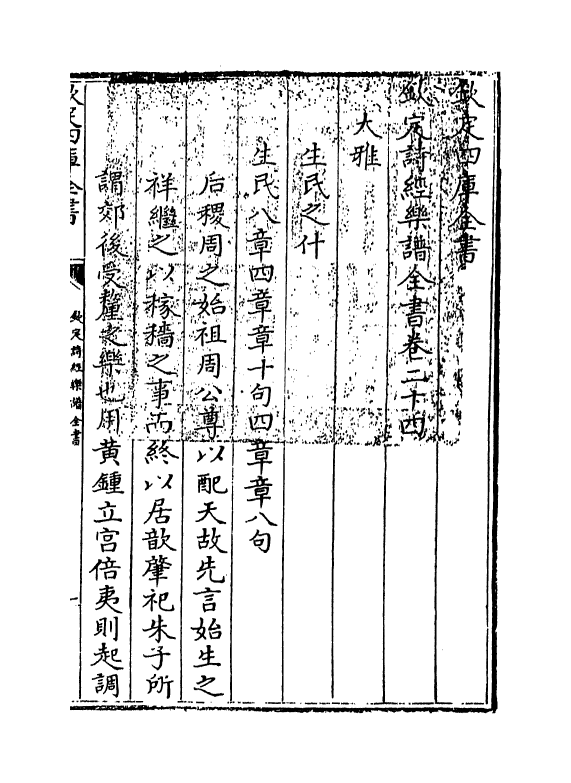 欽定四庫全書
欽定詩經樂譜全書卷二十四
大雅
生民之什
生民八章四章章十句四章章八句
后稷周之始祖周公尊以配天故先言始生之
祥繼之以稼穡之事而終以居歆肇祀朱子所
謂郊後受釐之樂也用黃鍾立宮倍夷則起調
欽定四庫全書
欽定詩經樂譜全書
一